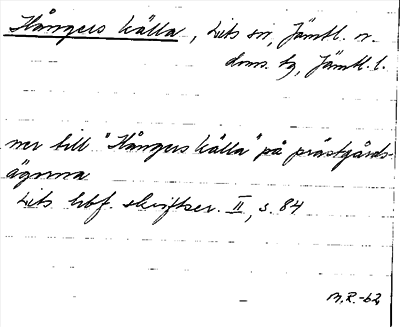 Hångers källa, Lits sn, Jämtl. n.
doms. bg, Jämtl. l.
ner till "Hångers källa" på prästgårds-
ägorna.
Lits hbf. skriftser. II, s. 84
M.R.-62